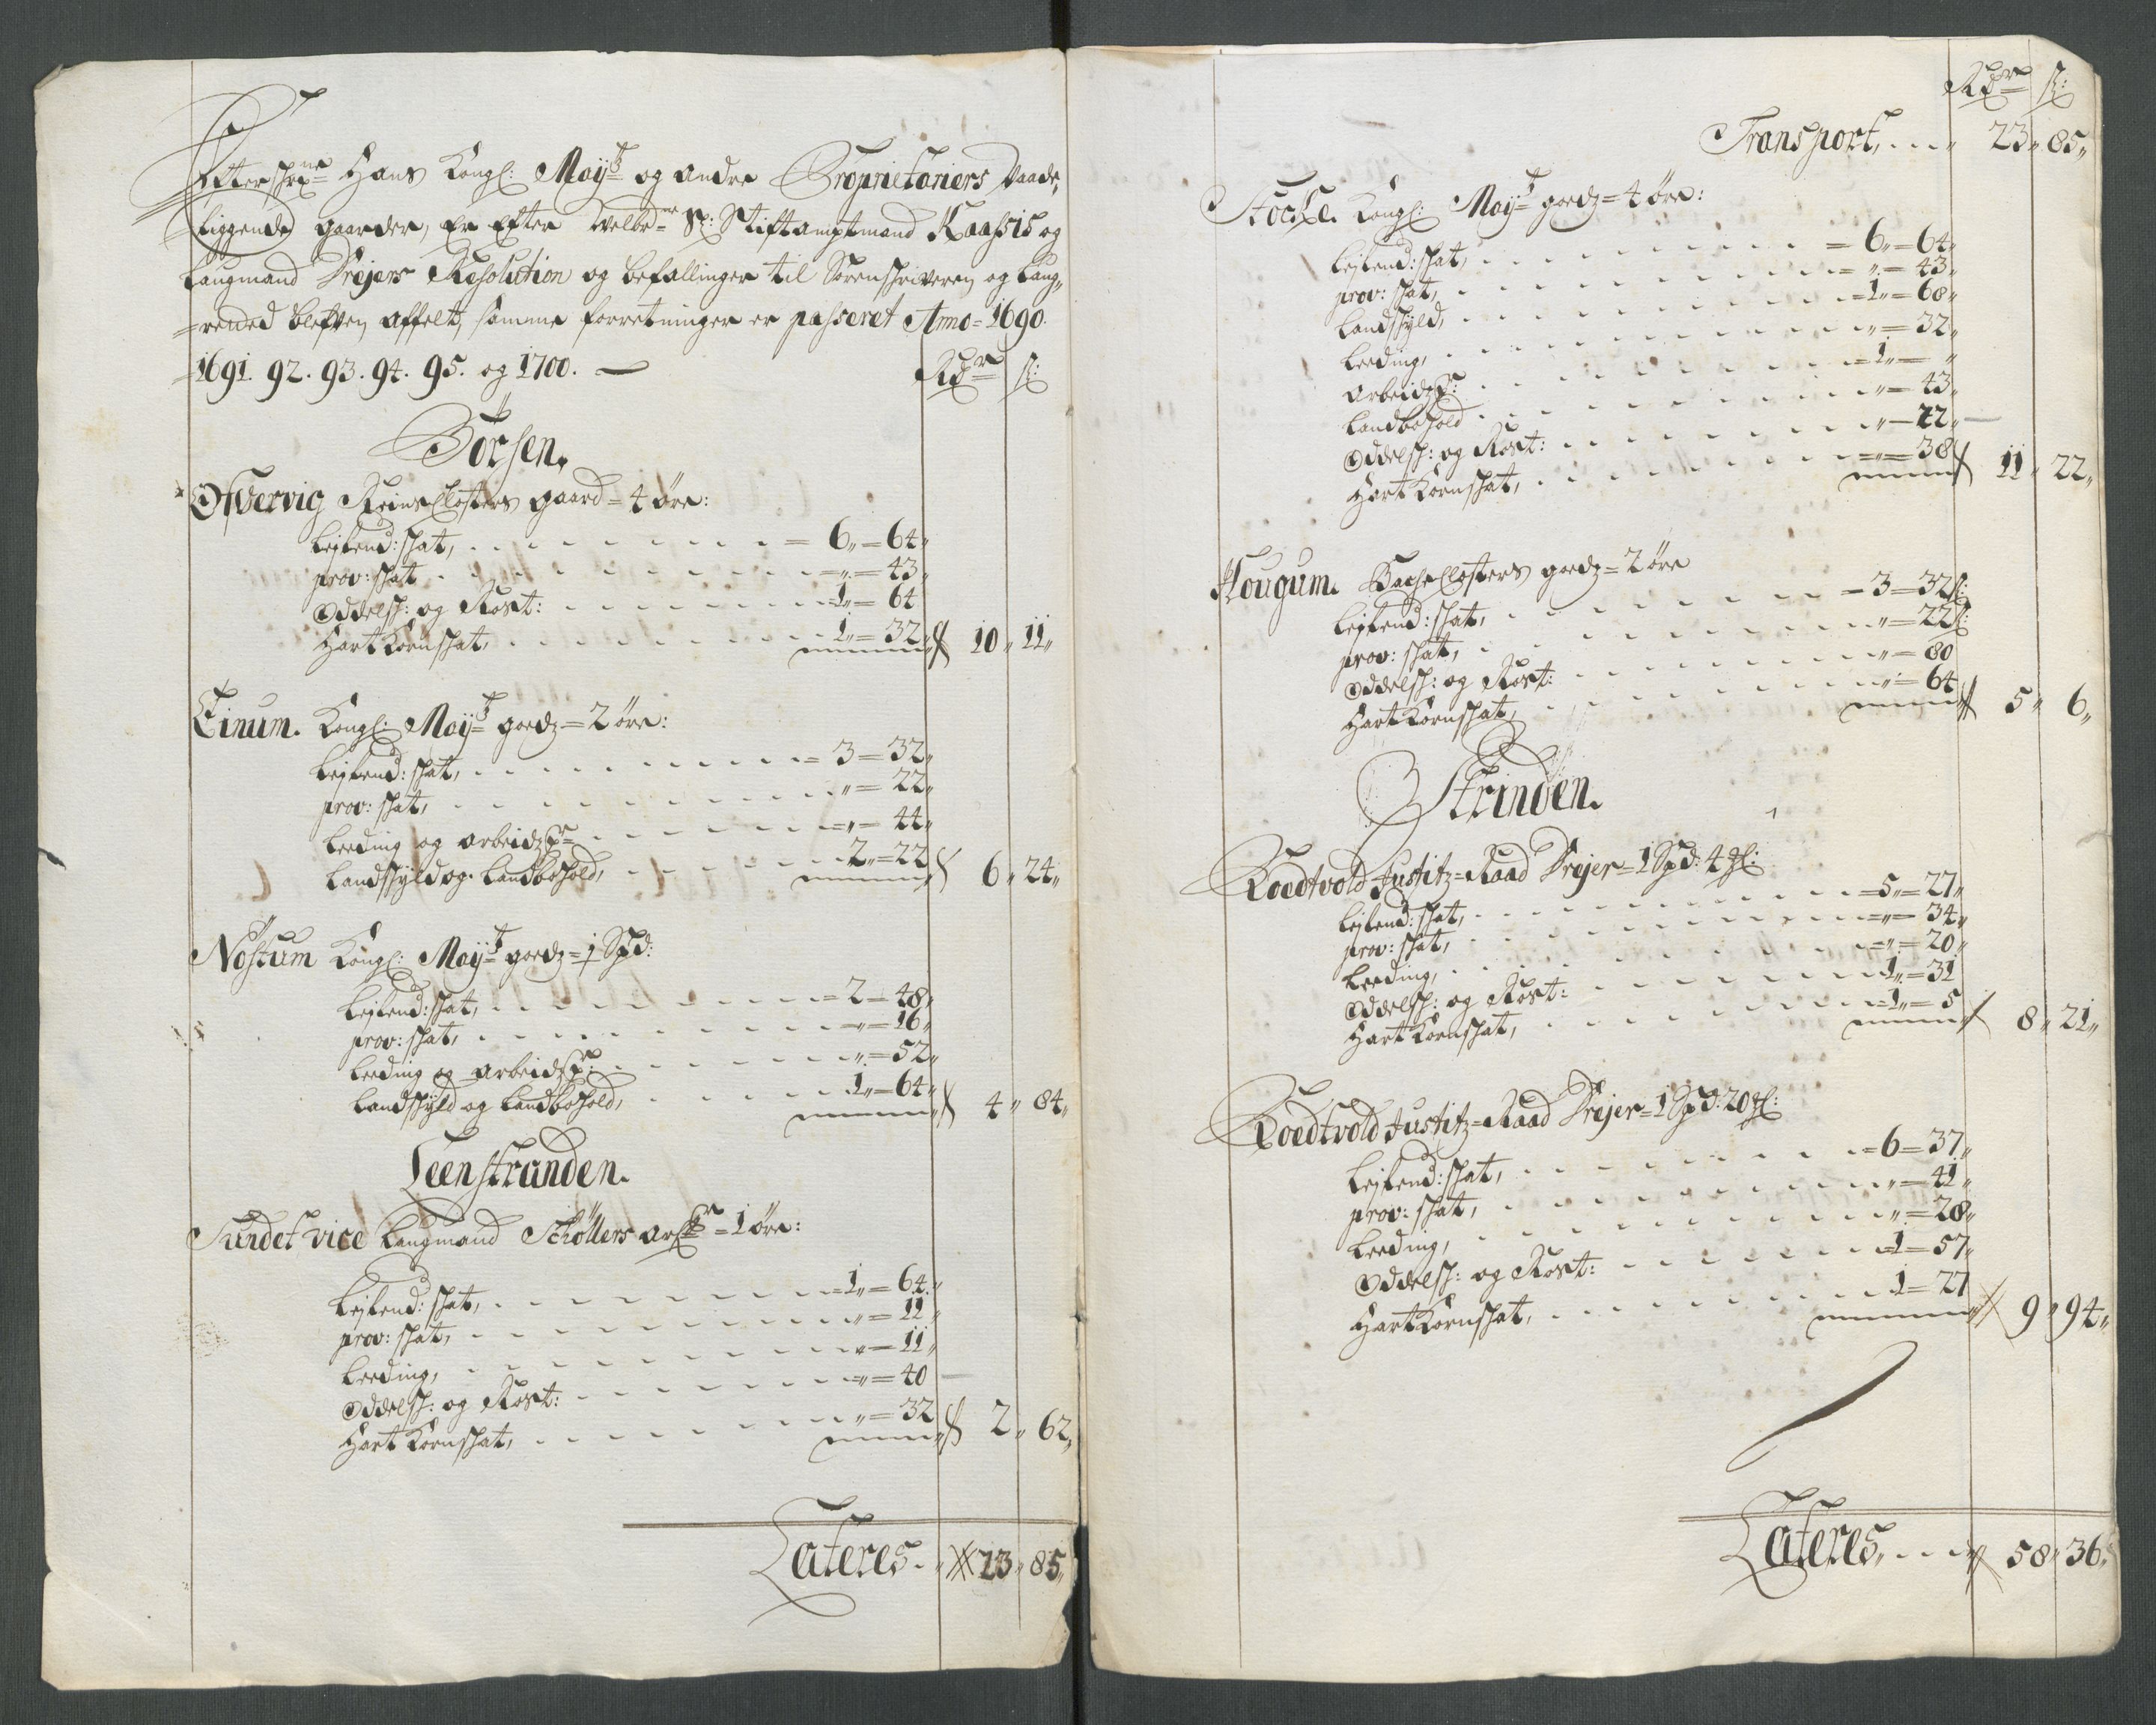 Efterschrne Hans Kongl: Mayts og andre Proprietariers øde,
liggende gaarder, er Efter Welbrne Hr: Stiftamptmand Kaassis og
Laugmand Drejers Resolution og befallinger til Sorenschriveren og Laug„
=retted blefven affelt, samme forretninger er passeret Anno = 1690.
=1691. 92. 93. 94. 95. og 1700. — Rdr ß:
Börsen.
Ofstervig Reins Closters gaard = 4 öre:
Lejlend: skat, 6„ = 64„
prov: skat „ = 43„
Oddelsk: og Rost: 1„ = 64
Hart Kornskat, 1„ = 32„ 10„ 11„
Einum. Kongl: Mayts goedz = 2 öre:
Lejlend: skat, 3 = 32„
prov: skat, „ = 22„
Leeding og arbeidzpr „ = 44„
Landskyld og Landbohold, 2„ = 22 6„ 24„
Nostum Kongl: Mayts goedz = 1 Spd:
Lejlend: skat, 2 = 48„
prov: skat, „ = 16„
Leeding og arbeidzpr: „ = 52„
Landskyld og Landbohold, 1„ = 64„ 4„ 84„
Leenstranden.
Sundet vice Laugmand Schöllers arfr = 1 öre:
Lejlend: skat, 1„ = 64„
prov: skat, „ = 11„
Leeding, „ = 11„
Oddelsk: og Rost: „ = 40
Hart Kornskat, „ = 32 2„ 62„
Lateres. 23„ 85„
Rdr ß:
Transport, 23„ 85„
Stocke. Kongl: Mayts goedz = 4 öre:
Lejlend: skat, 6„ = 64„
prov: skat, „ = 43„
Landskyld, 1„ = 68„
Leeding, „ = 32„
Arbeidzpr: 1„ = „
Landbohold „ = 43„
Oddelsk: og Rost: „ = 22„
Hart Kornskat, „ = 38„ 11„ 22„
Hougum. Backe Closters goedz = 2 öre
Lejlend: skat, 3 = 32ß:
prov: skat, „ = 22ß:
Oddelsk: og Rost: „ = 80
Hart Kornskat, „ = 64 5„ 6„
Strinden.
Roedtvold Justitz = Raad Drejer = 1 Spd: 4 gl:
Lejlend: skat, 5„ = 27„
prov: skat, „ = 34„
Leeding, „ = 20„
Oddelsk: og Rost: 1„ = 31
Hart Kornskat, 1„ = 5 8„ 21„
Roedtvold Justitz = Raad Drejer = 1 Spd: 20 gl:
Lejlend: skat, 6 = 37„
prov: skat, „ = 41„
Leeding, „ = 28„
Oddelsk: og Rost: 1 = 57„
Hart Kornskat, 1 = 27 9„ 94„
Lateres, 58„ 36„